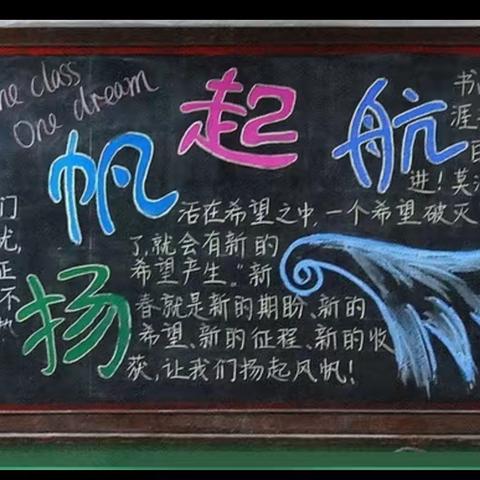 One class
One dream
扬帆起航
们
尤,
正
不
活在希望之中,一个希望破灭
了,就会有新的
希望产生。"新
春就是新的期盼、新的
希望、新的征程、新的收
获,让我们扬起风帆!
书
涯
百
进!莫